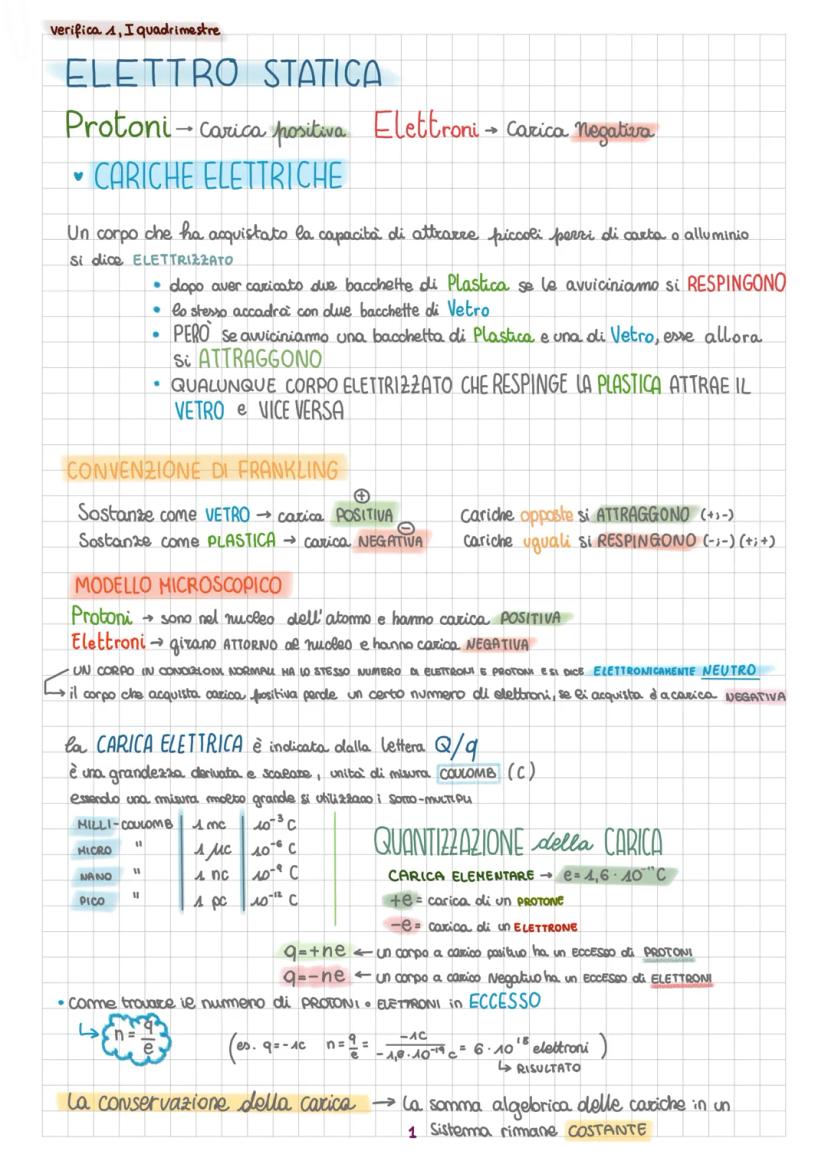 verifica 1, I quadrimestre
ELETTRO STATICA
Protoni → carica positiva Elettroni → carica Negativa
CARICHE ELETTRICHE
Un corpo che ha acquistato la capacità di attrarre piccoli pezzi di carta o alluminio
si dice ELETTRIZZATO
• dopo aver caricato due bacchette di Plastica se le avviciniamo si RESPINGONO
• lo stesso accadrà con due bacchette di Vetro
• PERÒ se avviciniamo una bacchetta di Plastica e una di Vetro, esse allora
si ATTRAGGONO
• QUALUNQUE CORPO ELETTRIZZATO CHE RESPINGE LA PLASTICA ATTRAE IL
VETRO e VICE VERSA
CONVENZIONE DI FRANKLING
+
Sostanze come VETRO → carica POSITIVA Cariche opposte si ATTRAGGONO (+;-)
−
Sostanze come PLASTICA → carica NEGATIVA Cariche uguali si RESPINGONO (-;-) (+;+)
MODELLO MICROSCOPICO
Protoni → sono nel nucleo dell'atomo e hanno carica POSITIVA
Elettroni → girano ATTORNO al nucleo e hanno carica NEGATIVA
UN CORPO IN CONDIZIONI NORMALI HA LO STESSO NUMERO DI ELETTRONI E PROTONI E SI DICE ELETTRONICAMENTE NEUTRO
→ il corpo che acquista carica positiva perde un certo numero di elettroni, se li acquista è a carica NEGATIVA
la CARICA ELETTRICA è indicata dalla lettera Q/q
è una grandezza derivata e scalare, unità di misura COULOMB (C)
essendo una misura molto grande si utilizzano i SOTTO-MULTIPLI
MILLI-COULOMB 1 mc 10⁻³ C
MICRO " 1 μc 10⁻⁶ C
NANO " 1 nc 10⁻⁹ C
PICO " 1 pc 10⁻¹² C
QUANTIZZAZIONE della CARICA
CARICA ELEMENTARE → e = 1,6 · 10⁻¹⁹ C
+e = carica di un PROTONE
-e = carica di un ELETTRONE
q=+ne ← un corpo a carico positivo ha un ECCESSO di PROTONI
q=-ne ← un corpo a carico Negativo ha un ECCESSO di ELETTRONI
• come trovare le numero di PROTONI o ELETTRONI in ECCESSO
n = q/e (es. q=-1c n = q/e = -1C / -1,6·10⁻¹⁹ c = 6·10¹⁸ elettroni)
↳ RISULTATO
La conservazione della carica → La somma algebrica delle cariche in un
1 Sistema rimane COSTANTE